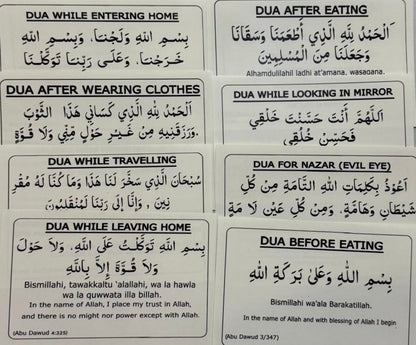 DUA WHILE ENTERING HOME
بِسْمِ اللهِ وَلَجْنَا، وَبِسْمِ اللهِ
خَرَجْنَا، وَعَلَى رَبِّنَا تَوَكَّلْنَا
DUA AFTER WEARING CLOTHES
اَلْحَمْدُ لِلّٰهِ الَّذِي كَسَانِي هَذَا الثَّوْبَ
وَرَزَقَنِيهِ مِنْ غَيْرِ حَوْلٍ مِنِّي وَلَا قُوَّةٍ.
DUA WHILE TRAVELLING
سُبْحَانَ الَّذِي سَخَّرَ لَنَا هَذَا وَمَا كُنَّا لَهُ مُقْرِ
نِينَ ، وَإِنَّا إِلَى رَبِّنَا لَمُنْقَلِبُونَ
DUA WHILE LEAVING HOME
بِسْمِ اللهِ تَوَكَّلْتُ عَلَى اللهِ، وَلَا حَوْلَ
وَلَا قُوَّةَ إِلَّا بِاللَّهِ
Bismillahi, tawakkaltu 'alallahi, wa la hawla
wa la quwwata illa billah.
In the name of Allah, I place my trust in Allah,
and there is no might nor power except with Allah.
(Abu Dawud 4:325)
DUA AFTER EATING
اَلْحَمْدُ لِلّٰهِ الَّذِي أَطْعَمَنَا وَسَقَانَا
وَجَعَلَنَا مِنَ الْمُسْلِمِينَ
Alhamdulilahil ladhi at'amana, wasaqana,
DUA WHILE LOOKING IN MIRROR
اَللَّهُمَّ أَنْتَ حَسَّنْتَ خَلْقِي
فَحَسِّنْ خُلُقِي
DUA FOR NAZAR (EVIL EYE)
اَعُوْذُ بِكَلِمَاتِ اللهِ التَّامَّةِ مِنْ كُلِّ
شَيْطَانٍ وَهَامَّةٍ، وَمِنْ كُلِّ عَيْنٍ لَا مَةٍ
DUA BEFORE EATING
بِسْمِ اللّٰهِ وَعَلَىٰ بَرَكَةِ اللهِ
Bismillahi wa'ala Barakatillah.
In the name of Allah and with blessing of Allah I begin
(Abu Dawud 3/347)